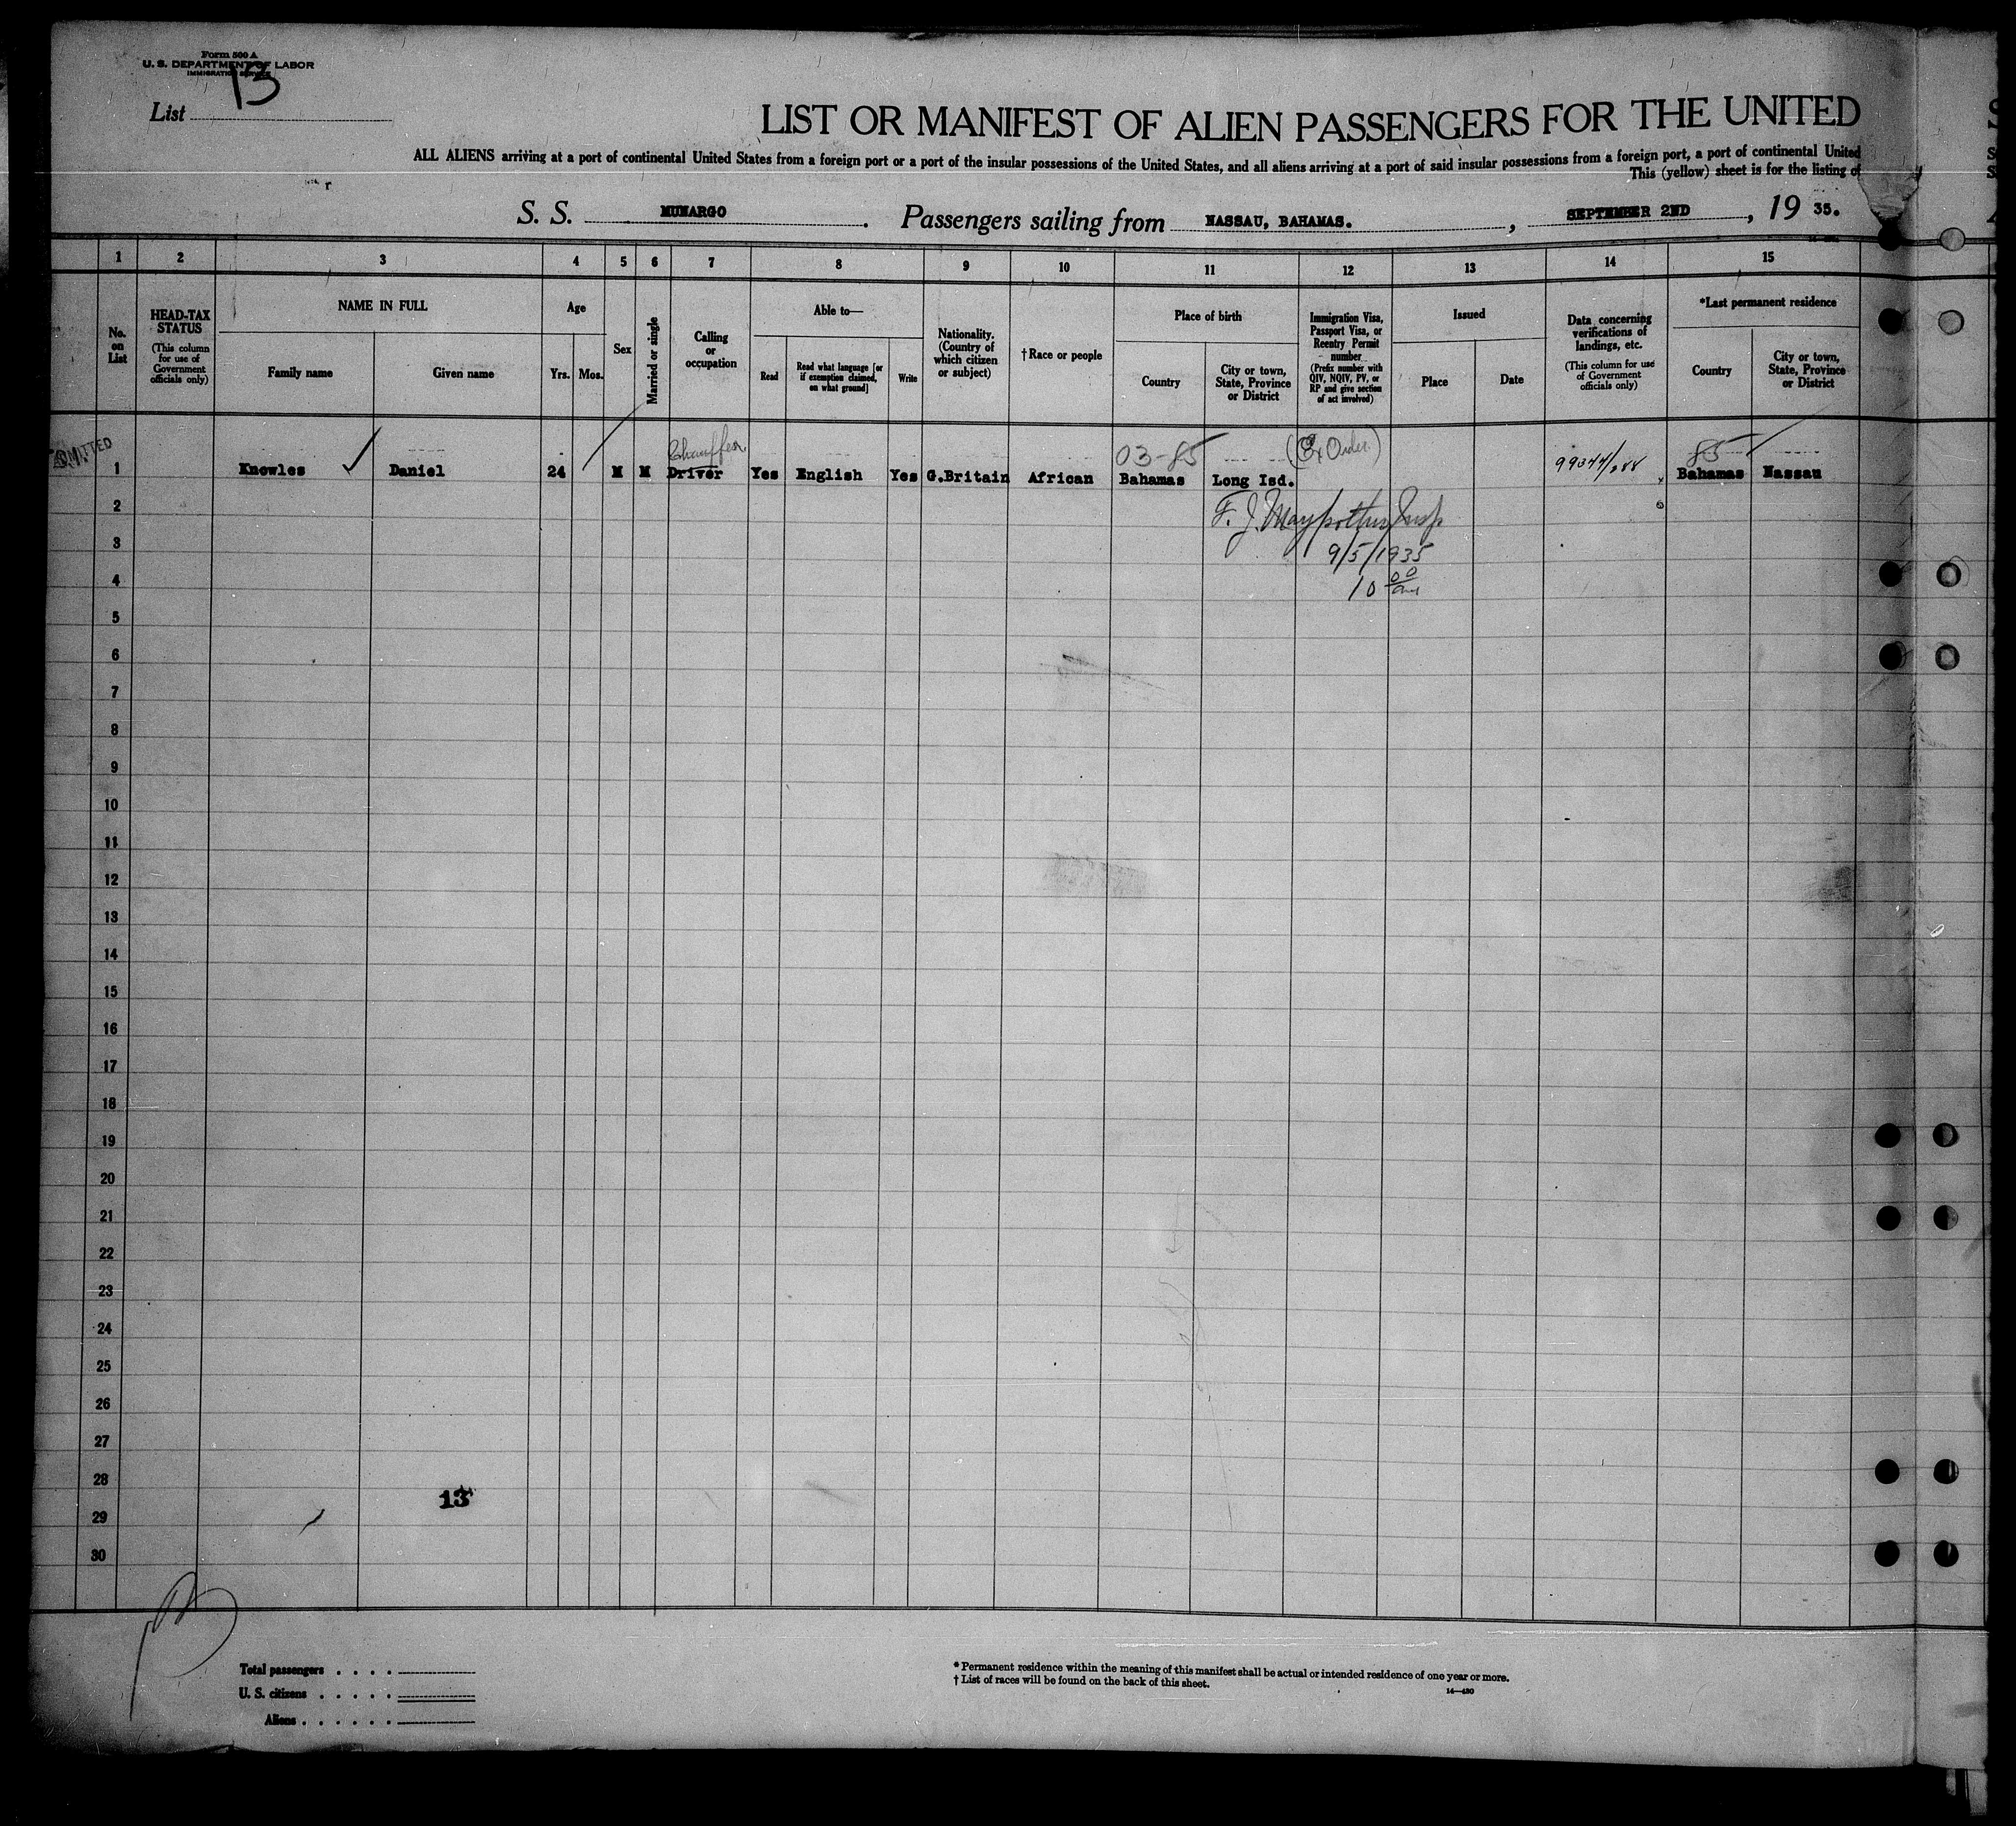 Form 500 A
U. S. DEPARTMENT OF LABOR
IMMIGRATION SERVICE
List 13
LIST OR MANIFEST OF ALIEN PASSENGERS FOR THE UNITED
ALL ALIENS arriving at a port of continental United States from a foreign port or a port of the insular possessions of the United States, and all aliens arriving at a port of said insular possessions from a foreign port, a port of continental United
This (yellow) sheet is for the listing of
S. S. MUNARGO. Passengers sailing from NASSAU, BAHAMAS., SEPTEMBER 2ND, 19 35.
1 2 3 4 5 6 7 8 9 10 11 12 13 14 15
No. on List
HEAD-TAX STATUS
(This column for use of Government officials only)
NAME IN FULL
Family name
Given name
Age
Yrs. Mos.
Sex
Married or single
Calling or occupation
Able to—
Read
Read what language [or if exemption claimed, on what ground]
Write
Nationality. (Country of which citizen or subject)
†Race or people
Place of birth
Country
City or town, State, Province or District
Immigration Visa, Passport Visa, or Reentry Permit number
(Prefix number with QIV, NQIV, PV, or RP and give section of act involved)
Issued
Place
Date
Data concerning verifications of landings, etc.
(This column for use of Government officials only)
*Last permanent residence
Country
City or town, State, Province or District
ADMITTED
Chauffeur 03-85 (Ex Order.) 85
1 Knowles Daniel 24 M M Driver Yes English Yes G.Britain African Bahamas Long Isd. Bahamas Nassau
2 F. J. Insp
3 9/5/1935
4 10 00 am
5
6
7
8
9
10
11
12
13
14
15
16
17
18
19
20
21
22
23
24
25
26
27
28
13
29
30
Total passengers . . . .
U. S. citizens . . . . .
Aliens . . . . . .
* Permanent residence within the meaning of this manifest shall be actual or intended residence of one year or more.
† List of races will be found on the back of this sheet.
14—430